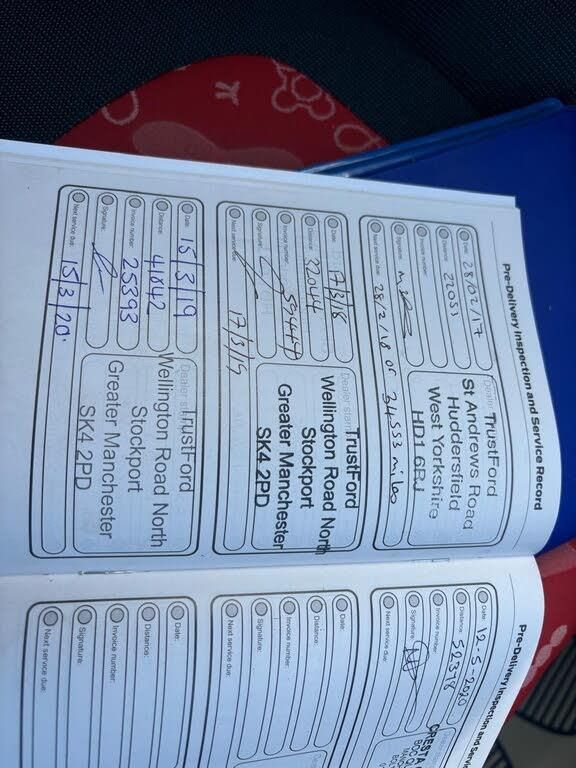 Pre-Delivery Inspection and Service Record
Date: 28/02/17
Distance: 22053
Invoice number:
Signature:
Next service due: 28/2/18 or 34553 miles
Dealer
TrustFord
St Andrews Road
Huddersfield
West Yorkshire
HD1 6RJ
Date: 17/3/18
Distance: 32044
Invoice number: 59444
Signature:
Next service due: 17/3/19
Dealer stamp
TrustFord
Wellington Road North
Stockport
Greater Manchester
SK4 2PD
Date: 15/3/19
Distance: 41842
Invoice number: 25393
Signature:
Next service due: 15/3/20.
Dealer st
TrustFord
Wellington Road North
Stockport
Greater Manchester
SK4 2PD
Pre-Delivery Inspection and Servi
Date: 12-5-2020
Distance: 52378
Invoice number:
Signature:
Next service due:
CRESTA
Date:
Distance:
Invoice number:
Signature:
Next service due:
Date:
Distance:
Invoice number:
Signature:
Next service due: